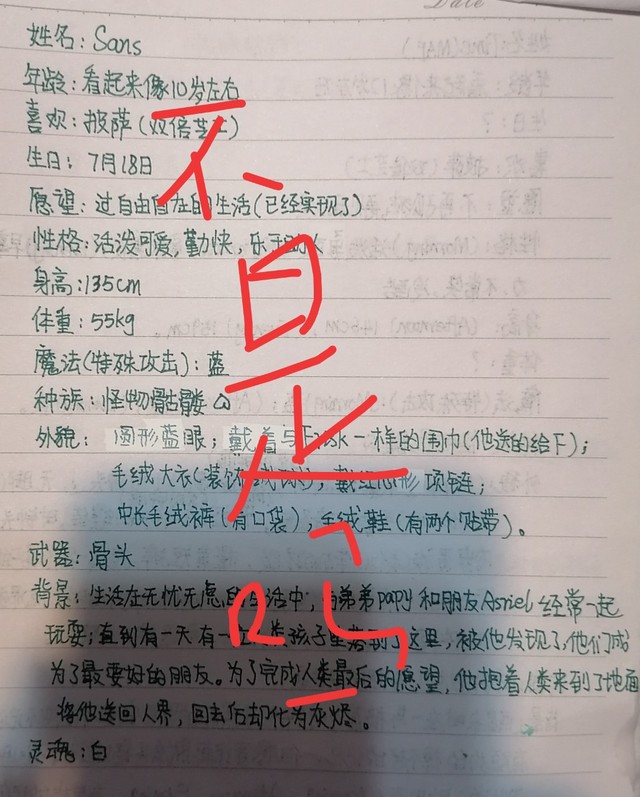 Date
姓名：Sans
年龄：看起来像10岁左右
喜欢：披萨（双倍芝士）
生日：7月18日
愿望：过自由自在的生活（已经实现了）
性格：活泼可爱，勤快，乐于助人
身高：135cm
体重：55kg
魔法（特殊攻击）：蓝
种族：怪物骷髅
外貌：圆形蓝眼；戴着与Frisk一样的围巾（他送的给F）；
毛绒大衣（装饰）；戴红心形项链；
中长毛绒裤（有口袋），毛绒鞋（有两个贴带）。
武器：骨头
背景：生活在无忧无虑的生活中，弟弟papy和朋友Asriel经常一起
玩耍；直到有一天有一孩子坠落到了这里，被他发现了，他们成
为了最要好的朋友。为了完成人类最后的愿望，他抱着人类来到了地面
将他送回人界，回去后却化为灰烬。
灵魂：白
不